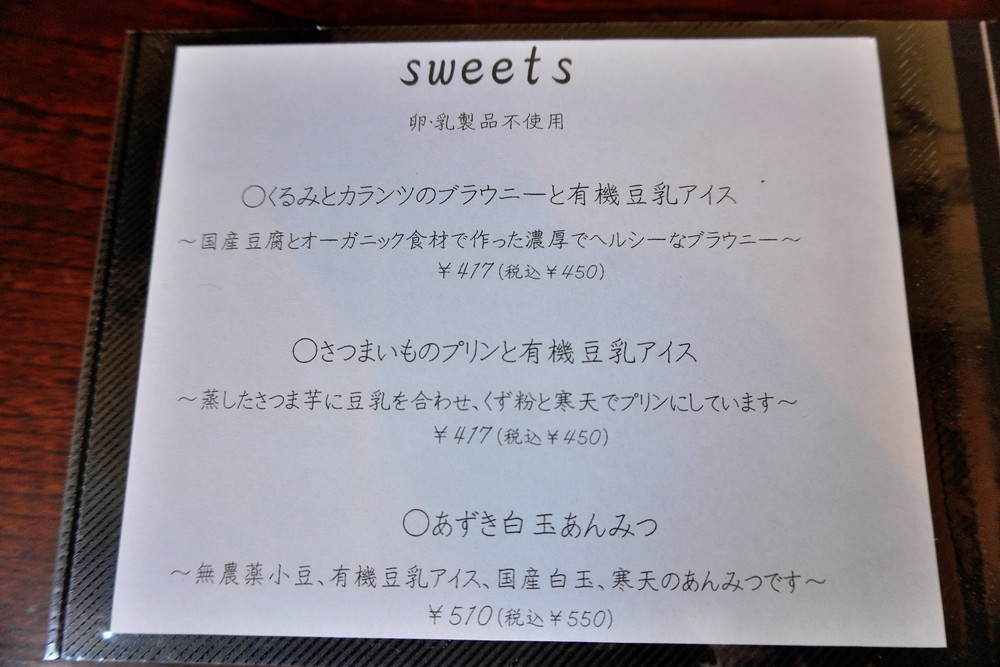 sweets
卵・乳製品不使用
○くるみとカランツのブラウニーと有機豆乳アイス
～国産豆腐とオーガニック食材で作った濃厚でヘルシーなブラウニー～
￥417(税込￥450)
○さつまいものプリンと有機豆乳アイス
～蒸したさつま芋に豆乳を合わせ、くず粉と寒天でプリンにしています～
￥417(税込￥450)
○あずき白玉あんみつ
～無農薬小豆、有機豆乳アイス、国産白玉、寒天のあんみつです～
￥510(税込￥550)